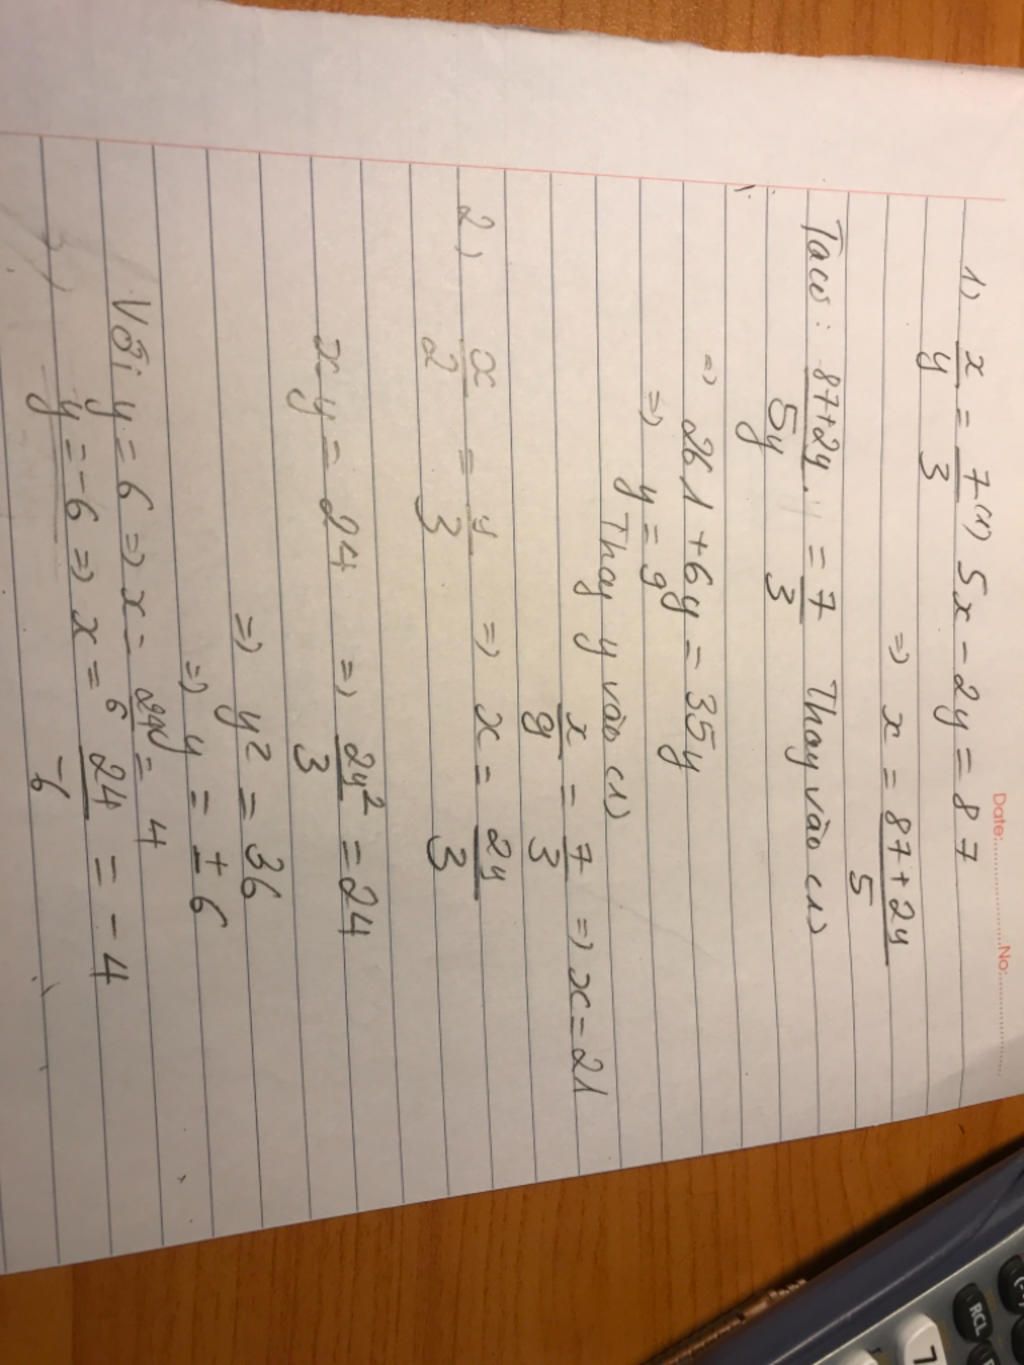 Date:............No:............
1) x/y = 7/3 (1) 5x - 2y = 87
=> x = 87+2y/5
Ta có: 87+2y/5y = 7/3 Thay vào (1)
=> 261 + 6y = 35y
=> y = 9
Thay y vào (1)
x/9 = 7/3 => x = 21
2) x/2 = y/3 => x = 2y/3
xy = 24 => 2y²/3 = 24
=> y² = 36
=> y = ± 6
Với y = 6 => x = 24/6 = 4
y = -6 => x = 24/-6 = -4
RCL
7